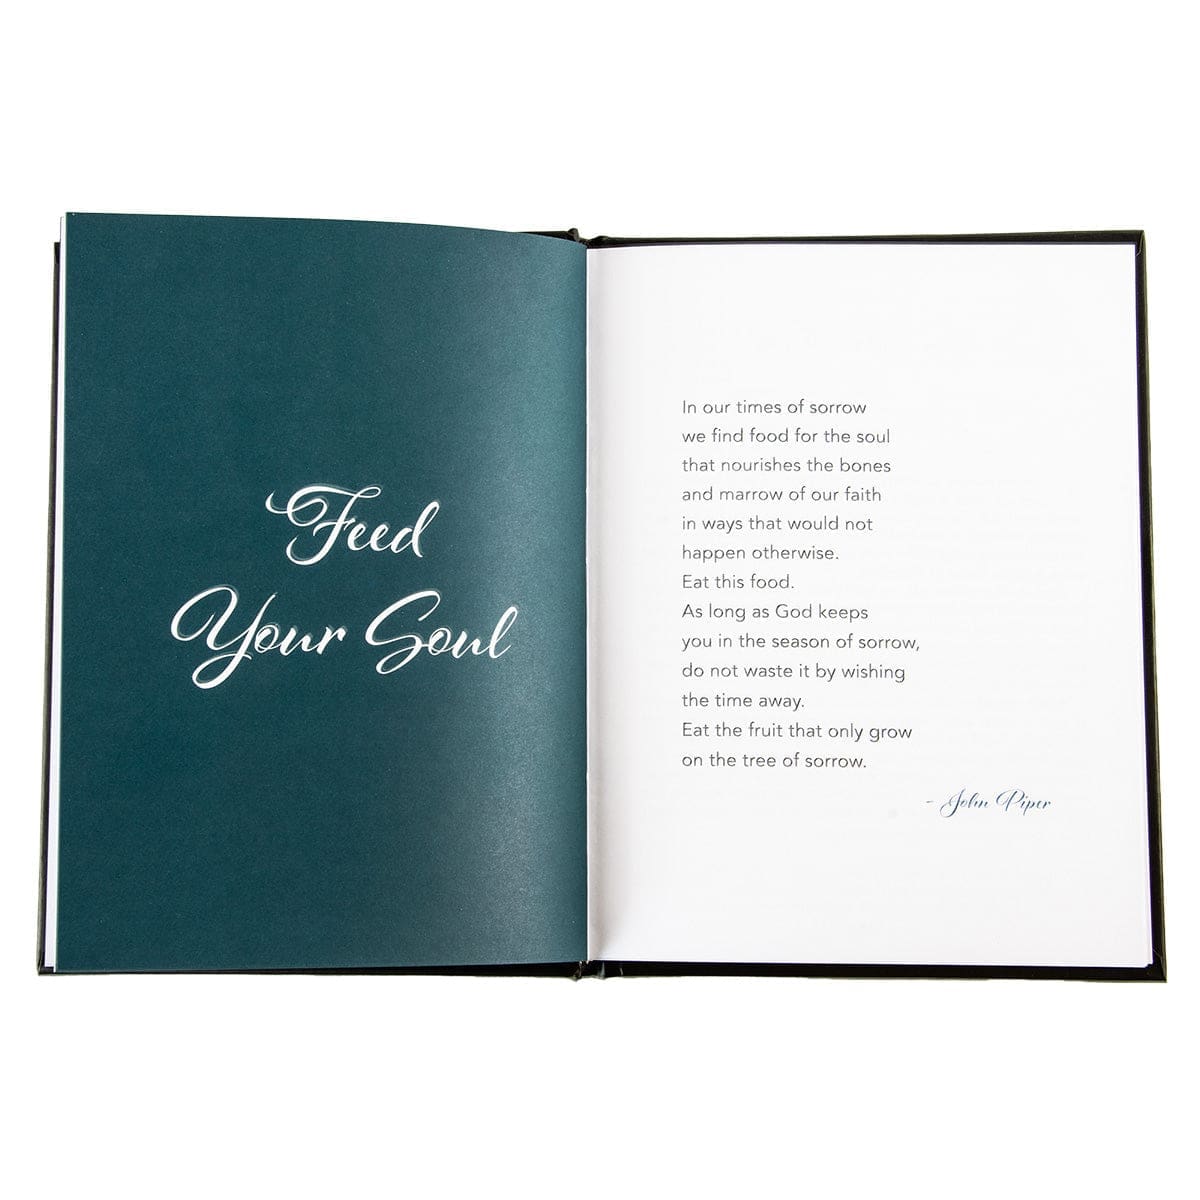 Feed
Your Soul
In our times of sorrow
we find food for the soul
that nourishes the bones
and marrow of our faith
in ways that would not
happen otherwise.
Eat this food.
As long as God keeps
you in the season of sorrow,
do not waste it by wishing
the time away.
Eat the fruit that only grow
on the tree of sorrow.
- John Piper